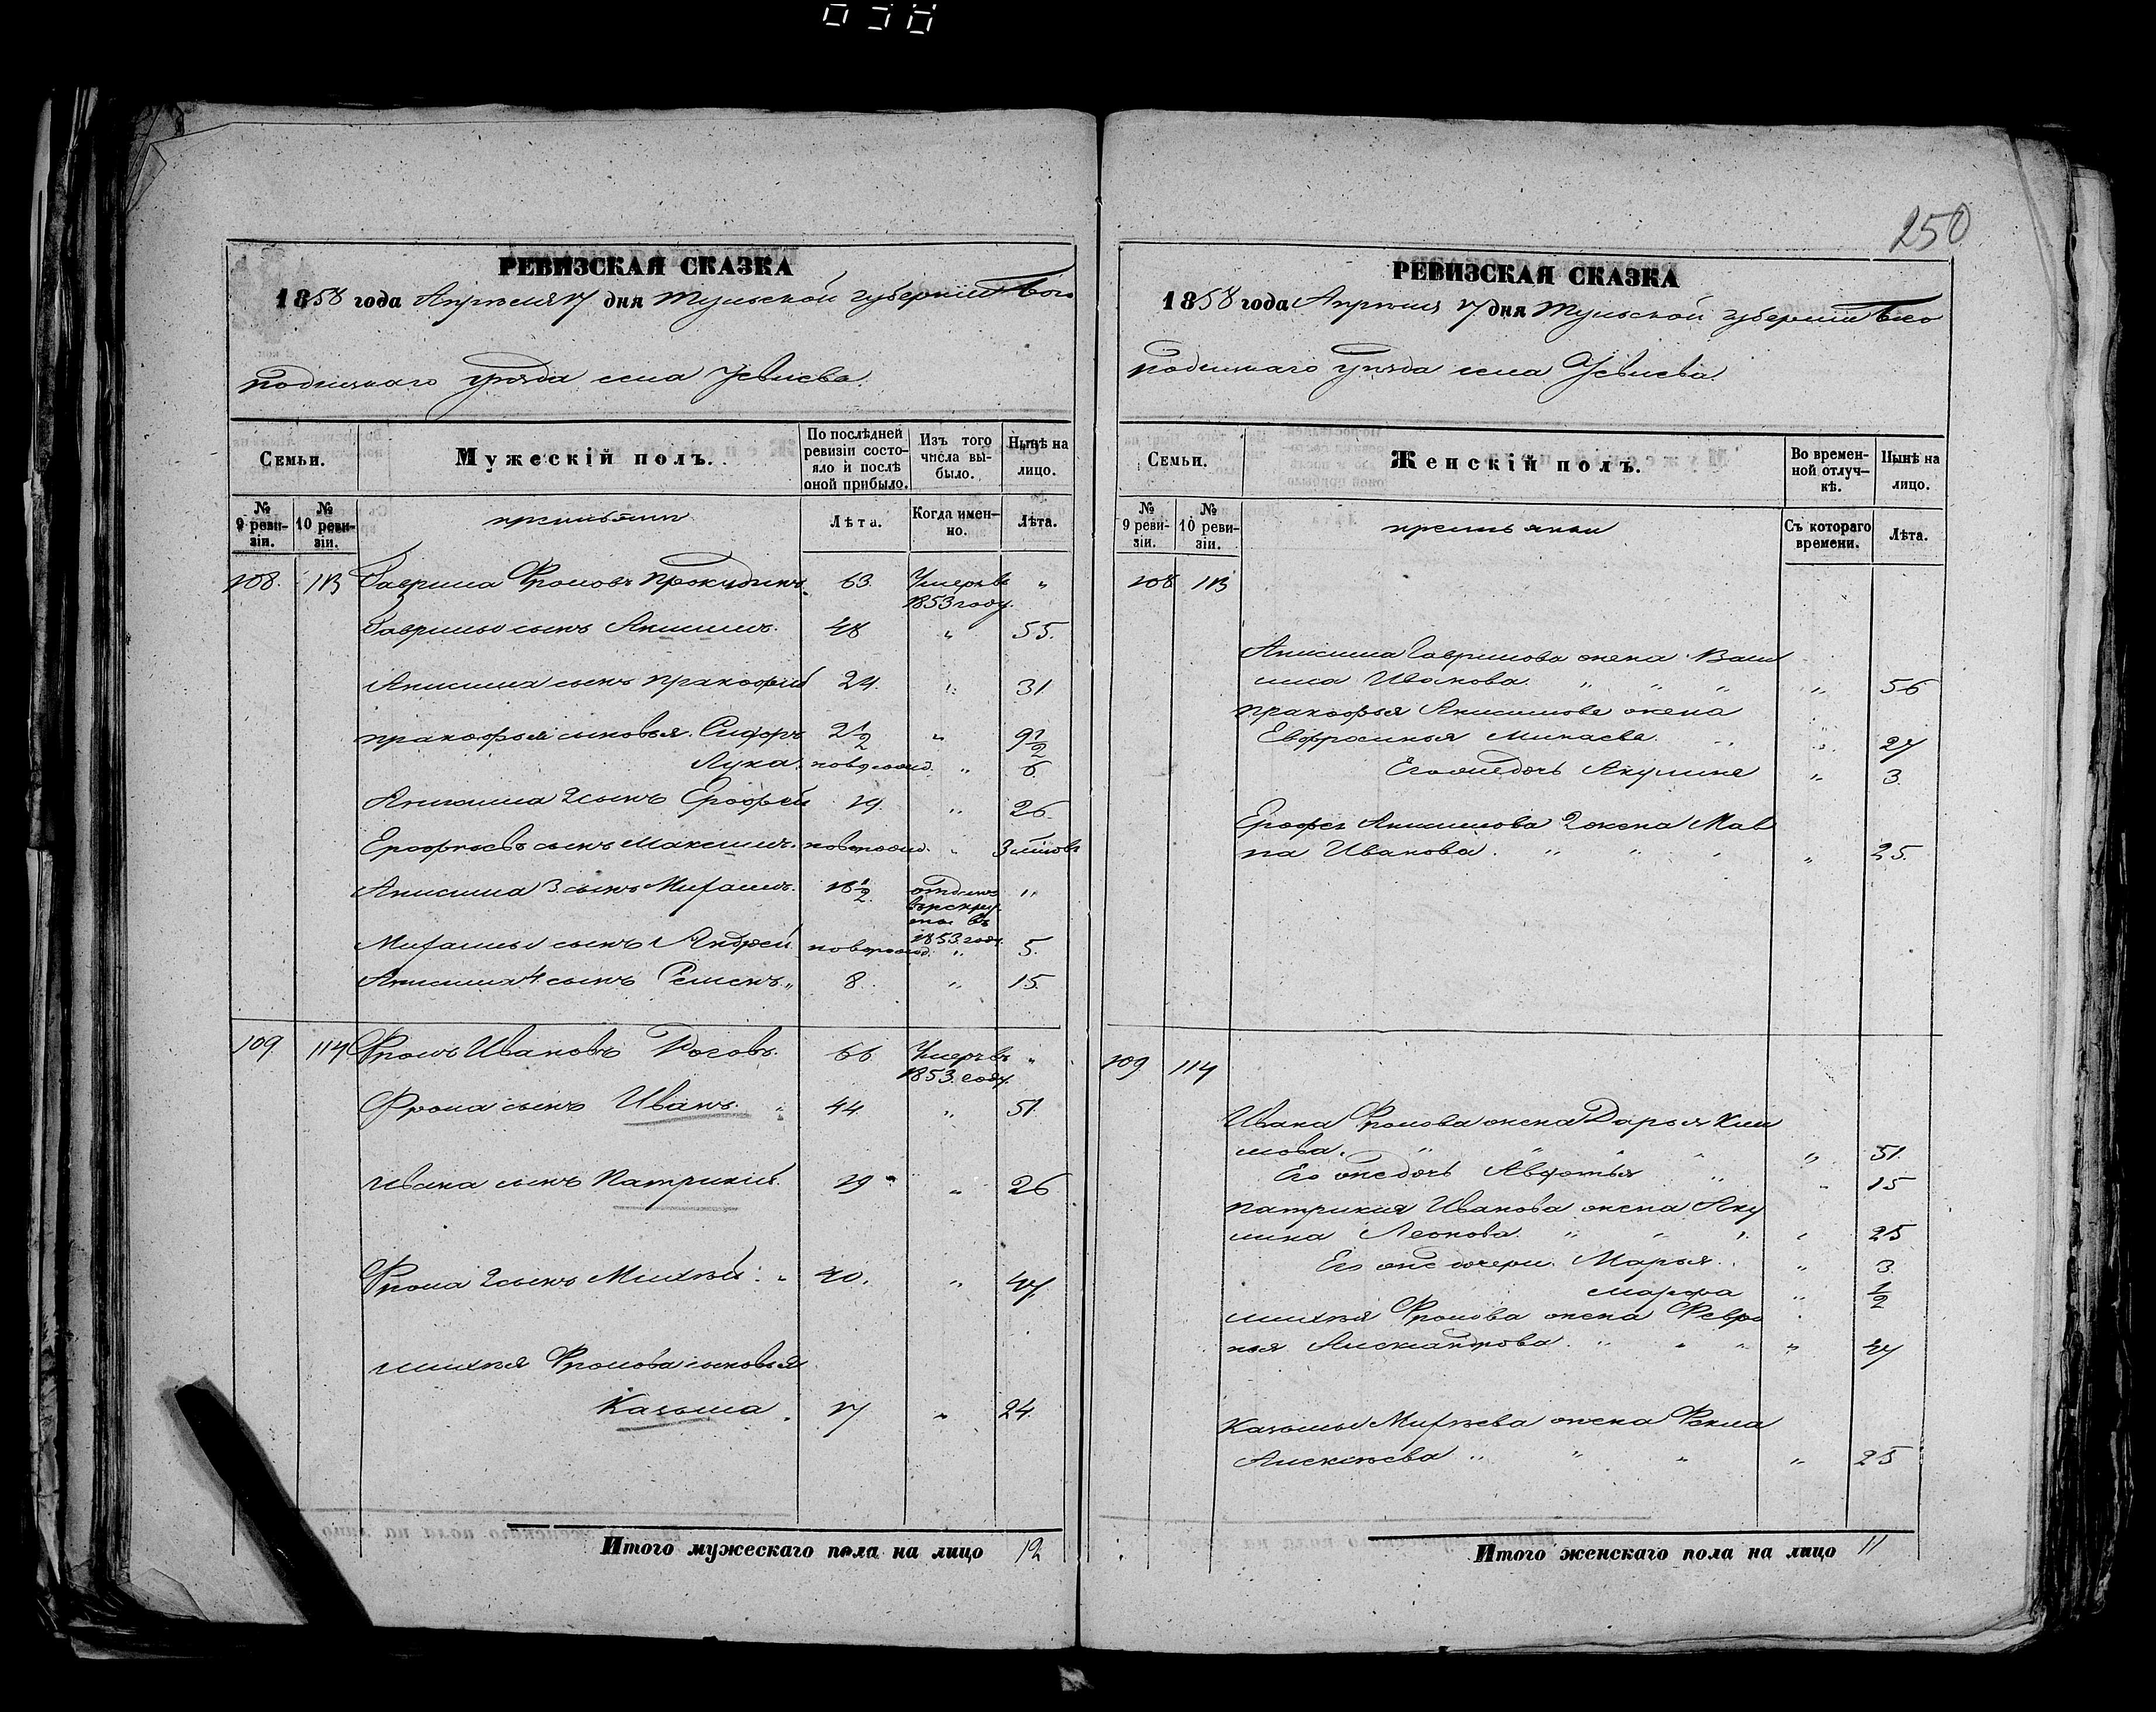 250
РЕВИЗСКАЯ СКАЗКА
1858 года Апреля 17 дня Тульской губернии Бого
родицкаго уѣзда села
Семьи.
Мужескій полъ.
По послѣдней ревизіи состояло и послѣ оной прибыло.
Изъ того числа выбыло.
Нынѣ на лицо.
№ 9 ревизіи.
№ 10 ревизіи.
крестьяне
Лѣта.
Когда именно.
Лѣта.
108. 113 Гаврила Фроловъ Прокудинъ 63. Умеръ въ 1853 году. "
Гаврилы сынъ Анисимъ. 48 " 55.
Анисима сынъ Пракофий 24. " 31
Пракофья сыновья. Сидоръ 2 1/2 " 9 1/2
Лука. новорожд. " 6.
Анисима 2 сынъ Ерофей 19. " 26.
Ерофѣевъ сынъ Максимъ. новорожд. " 3
Анисима 3. сынъ 18 1/2 отданъ въ рекруты въ 1853 году. "
сынъ Андрей новорожд. " 5.
Анисима 4 сынъ Семенъ " 8. " 15.
109. 114 Фролъ Ивановъ 66 Умеръ въ 1853 году. "
Фрола сынъ Иванъ. " 44 " 51.
Ивана сынъ Патрикий. 19 " 26
Фрола 2 сынъ Михѣй. " 40. " 47.
Михѣя Фролова сыновья
Казьма. 17 " 24.
Итого мужескаго пола на лицо 12
РЕВИЗСКАЯ СКАЗКА
1858 года Апреля 17 дня Тульской губернии Бого
родицкаго уѣзда села
Семьи.
Женскій полъ.
Во временной отлучкѣ.
Нынѣ на лицо.
№ 9 ревизіи.
№ 10 ревизіи.
крестьянки
Съ котораго времени.
Лѣта.
108 113
Анисима Гаврилова жена Васи
лиса Иванова. " " " " 56
Пракофья Анисимова жена
Евфросинья Минаева. " " 27
Его же дочь Акулина " 3.
Ерофея Анисимова 2 жена Мав
ра Иванова. " " " " 25.
109 114
Ивана Фролова жена Дарья Кли
мова. " " " " 51.
Его же дочь Авдотья " " 15
Патрикия Иванова жена Аку
лина Леонова. " " " " 25
Его же дочери. Марья. " 3.
Марфа " 1/2
Михѣя Фролова жена Февро
нья Александрова. " " " " 47
Казьмы Михѣева жена Фекла
Алексѣева " " " " 25
Итого женскаго пола на лицо 11